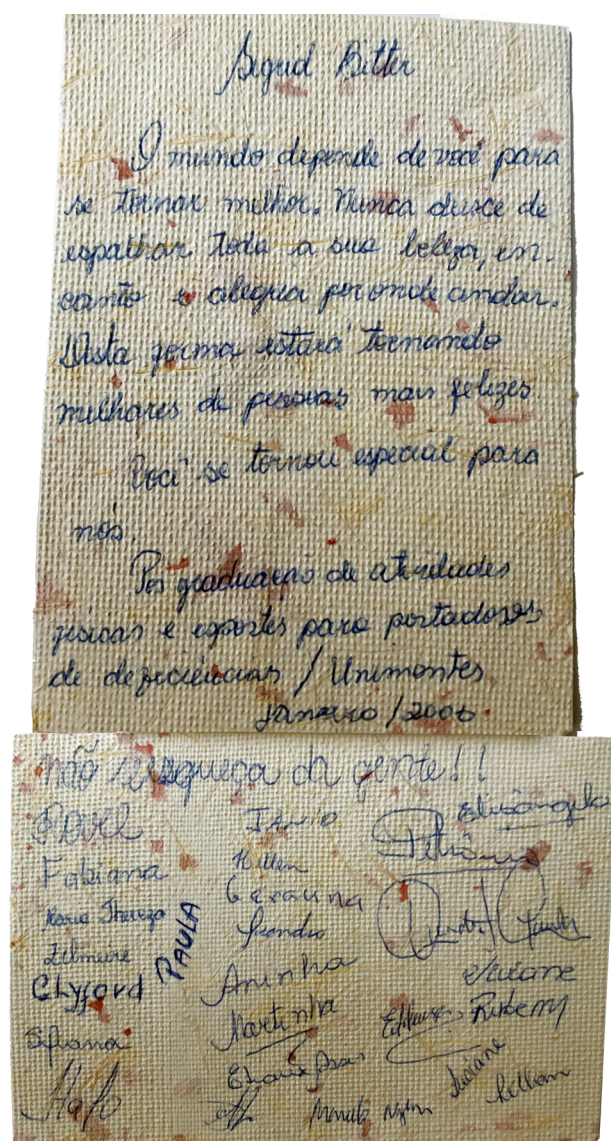 Sigrid Bitter
O mundo depende de você para
se tornar melhor. Nunca deixe de
espalhar toda a sua beleza, en-
canto e alegria por onde andar.
Desta forma estará tornando
milhares de pessoas mais felizes.
Você se tornou especial para
nós.
Pós graduação de atividades
físicas e esportes para portadores
de deficiências / Unimontes
janeiro / 2006.
não se esqueça da gente!!
Fabiana
Maria Thereza
Zilmeire
Clyfford
Silvana
PAULA
Hellen
Leandro
Aninha
Martinha
Elisângela
Petrônio
Luciane